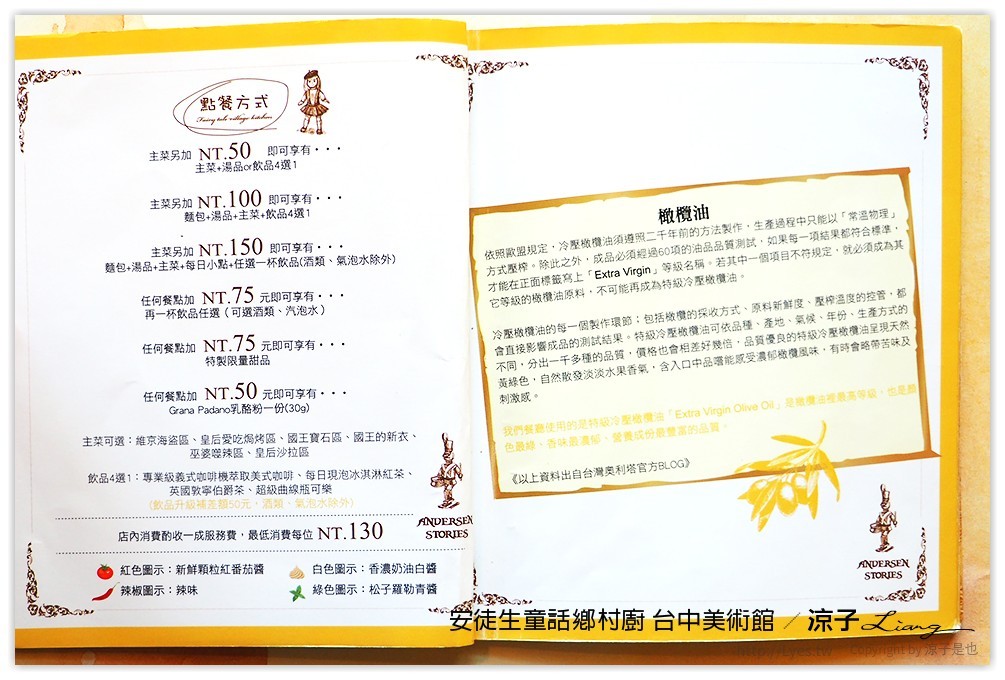 點餐方式
Fairy tale village kitchen
主菜另加 NT.50 即可享有···
主菜+湯品or飲品4選1
主菜另加 NT.100 即可享有···
麵包+湯品+主菜+飲品4選1
主菜另加 NT.150 即可享有···
麵包+湯品+主菜+每日小點+任選一杯飲品(酒類、氣泡水除外)
任何餐點加 NT.75 元即可享有···
再一杯飲品任選(可選酒類、汽泡水)
任何餐點加 NT.75 元即可享有···
特製限量甜品
任何餐點加 NT.50 元即可享有···
Grana Padano乳酪粉一份(30g)
主菜可選：維京海盜區、皇后愛吃焗烤區、國王寶石區、國王的新衣、
巫婆噬辣區、皇后沙拉區
飲品4選1：專業級義式咖啡機萃取美式咖啡、每日現泡冰淇淋紅茶、
英國敦寧伯爵茶、超級曲線瓶可樂
(飲品升級補差額50元，酒類、氣泡水除外)
店內消費酌收一成服務費，最低消費每位 NT.130
紅色圖示：新鮮顆粒紅番茄醬
白色圖示：香濃奶油白醬
辣椒圖示：辣味
綠色圖示：松子羅勒青醬
ANDERSEN
STORIES
橄欖油
依照歐盟規定，冷壓橄欖油須遵照二千年前的方法製作，生產過程中只能以「常溫物理」
方式壓榨。除此之外，成品必須經過60項的油品品質測試，如果每一項結果都符合標準，
才能在正面標籤寫上「Extra Virgin」等級名稱。若其中一個項目不符規定，就必須成為其
它等級的橄欖油原料，不可能再成為特級冷壓橄欖油。
冷壓橄欖油的每一個製作環節；包括橄欖的採收方式、原料新鮮度、壓榨溫度的控管，都
會直接影響成品的測試結果。特級冷壓橄欖油可依品種、產地、氣候、年份、生產方式的
不同，分出一千多種的品質，價格也會相差好幾倍，品質優良的特級冷壓橄欖油呈現天然
黃綠色，自然散發淡淡水果香氣，含入口中品嚐能感受濃郁橄欖風味，有時會略帶苦味及
刺激感。
我們餐廳使用的是特級冷壓橄欖油「Extra Virgin Olive Oil」是橄欖油裡最高等級，也是顏
色最綠、香味最濃郁、營養成份最豐富的品質。
《以上資料出自台灣奧利塔官方BLOG》
ANDERSEN
STORIES
安徒生童話鄉村廚 台中美術館 ／涼子 Liang
http://Lyes.tw Copyright by 涼子是也